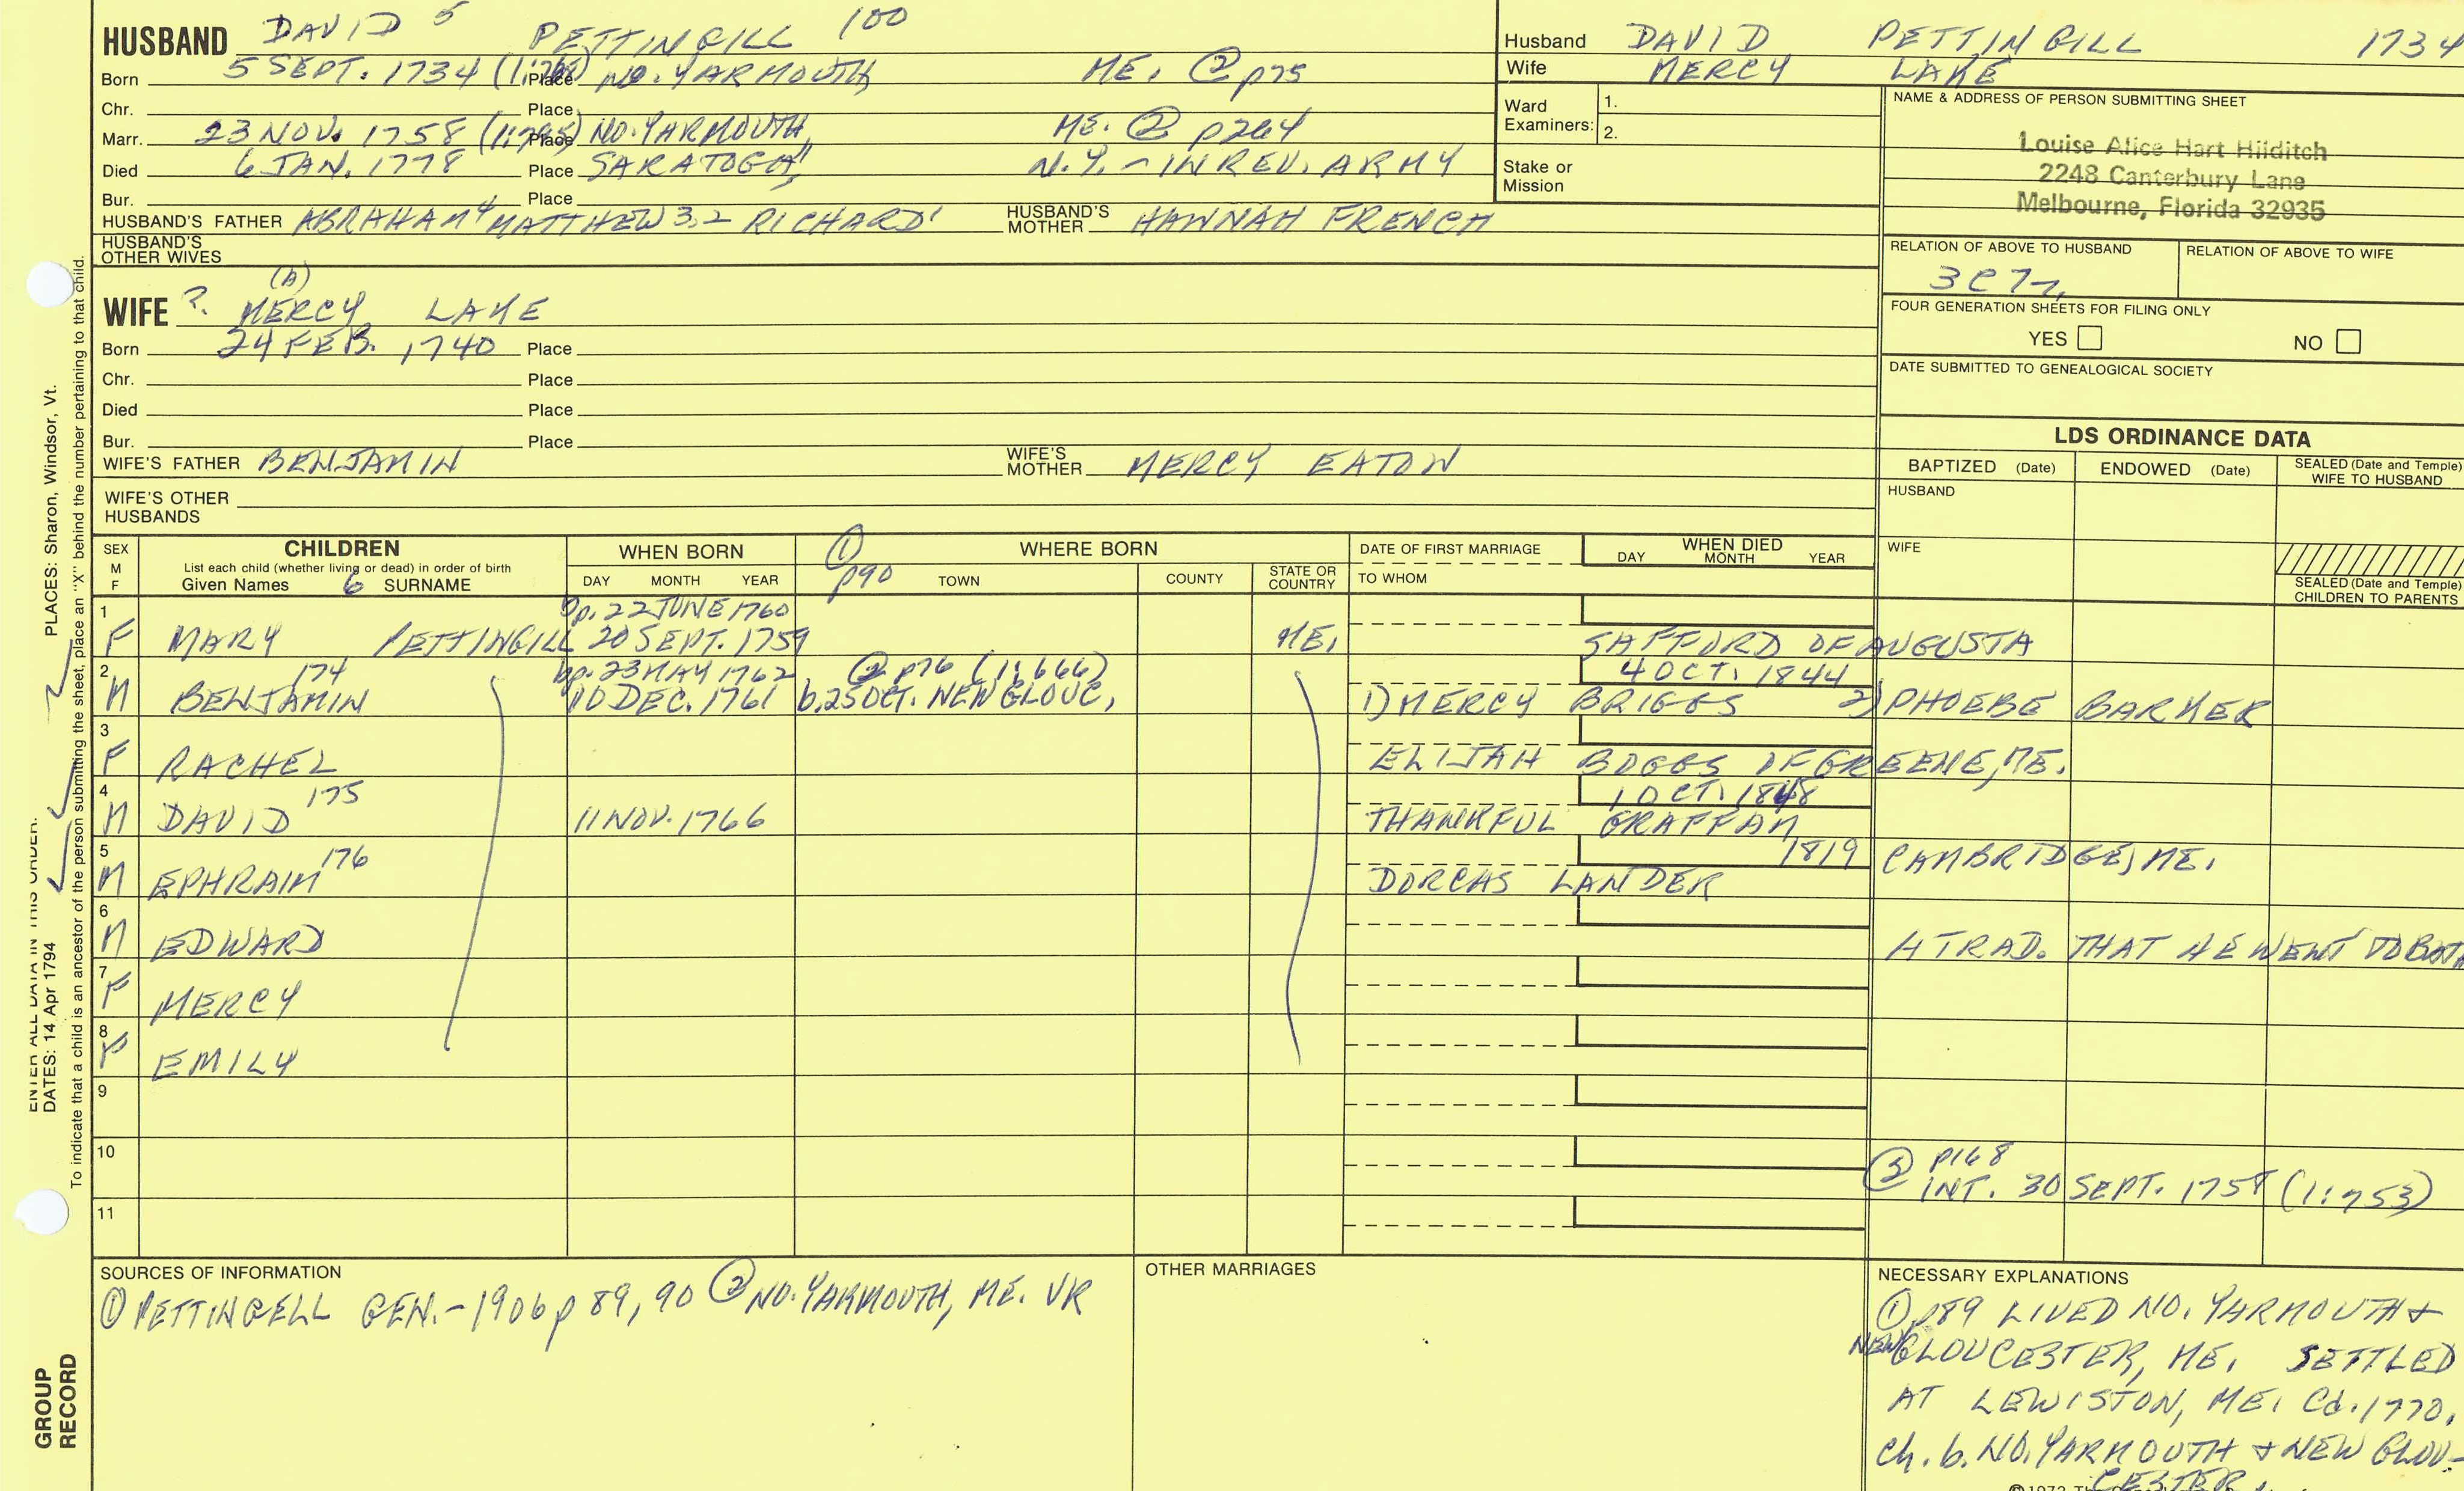 HUSBAND DAVID 5 PETTINGILL 100
Born 5 SEPT. 1734 Place NO. YARMOUTH ME. ② p75
Chr. Place
Marr. 23 NOV. 1758 Place NO. YARMOUTH, ME. ② p264
Died 6 JAN. 1778 Place SARATOGA, N.Y. - IN REV. ARMY
Bur. Place
HUSBAND'S FATHER ABRAHAM 4 MATTHEW 3,2 RICHARD 1 HUSBAND'S MOTHER HANNAH FRENCH
HUSBAND'S OTHER WIVES
(A)
WIFE ? MERCY LAKE
Born 24 FEB. 1740 Place
Chr. Place
Died Place
Bur. Place
WIFE'S FATHER BENJAMIN WIFE'S MOTHER MERCY EATON
WIFE'S OTHER HUSBANDS
Husband DAVID PETTINGILL 1734
Wife MERCY LAKE
Ward Examiners: 1.
2.
Stake or Mission
NAME & ADDRESS OF PERSON SUBMITTING SHEET
Louise Alice Hart Hilditch
2248 Canterbury Lane
Melbourne, Florida 32935
RELATION OF ABOVE TO HUSBAND RELATION OF ABOVE TO WIFE
FOUR GENERATION SHEETS FOR FILING ONLY
YES NO
DATE SUBMITTED TO GENEALOGICAL SOCIETY
LDS ORDINANCE DATA
BAPTIZED (Date) ENDOWED (Date) SEALED (Date and Temple) WIFE TO HUSBAND
HUSBAND
WIFE
SEALED (Date and Temple) CHILDREN TO PARENTS
SEX M F CHILDREN WHEN BORN ① p90 WHERE BORN DATE OF FIRST MARRIAGE WHEN DIED
List each child (whether living or dead) in order of birth
Given Names 6 SURNAME DAY MONTH YEAR TOWN COUNTY STATE OR COUNTRY TO WHOM DAY MONTH YEAR
1 bp. 22 JUNE 1760
F MARY PETTINGILL 20 SEPT. 1759 ME. SAFFORD OF AUGUSTA
2 174 bp. 23 MAY 1762 ② p76 (1:666) 4 OCT. 1844
M BENJAMIN 10 DEC. 1761 b. 25 OCT. NEW GLOUC, 1) MERCY BRIGGS 2) PHOEBE BARKER
3
F RACHEL ELIJAH BOGGS OF GREENE, ME.
4 175 1 OCT. 1848
M DAVID 11 NOV. 1766 THANKFUL GRAFFAM
5 176 1819 CAMBRIDGE, ME.
M EPHRAIM DORCAS LANDER
6
M EDWARD A TRAD. THAT HE WENT TO
7
F MERCY
8
F EMILY
9
10
③ p168
INT. 30 SEPT. 1758 (1:753)
11
SOURCES OF INFORMATION
① PETTINGELL GEN. - 1906 p 89, 90 ② NO. YARMOUTH, ME. VR
OTHER MARRIAGES
NECESSARY EXPLANATIONS
① p89 LIVED NO. YARMOUTH &
NEW GLOUCESTER, ME. SETTLED
AT LEWISTON, ME. Ca. 1770.
Ch. b. NO. YARMOUTH & NEW GLOU-
CESTER
PLACES: Sharon, Windsor, Vt.
DATES: 14 Apr 1794
To indicate that a child is an ancestor of the person submitting the sheet, place an "X" behind the number pertaining to that child.
GROUP
RECORD